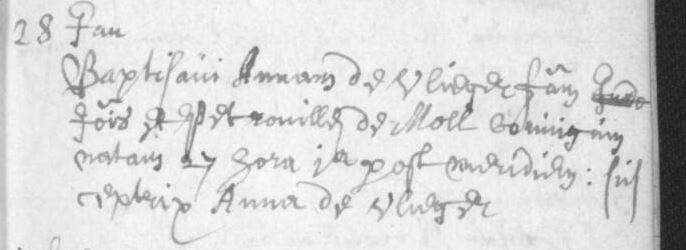 28 Jan
Baptisavi Annam de Vlieger fam
fois et Petronillæ de Moll coniugum
natam 27 hora 1a post meridiem: sus
ceptrix Anna de Vlieger